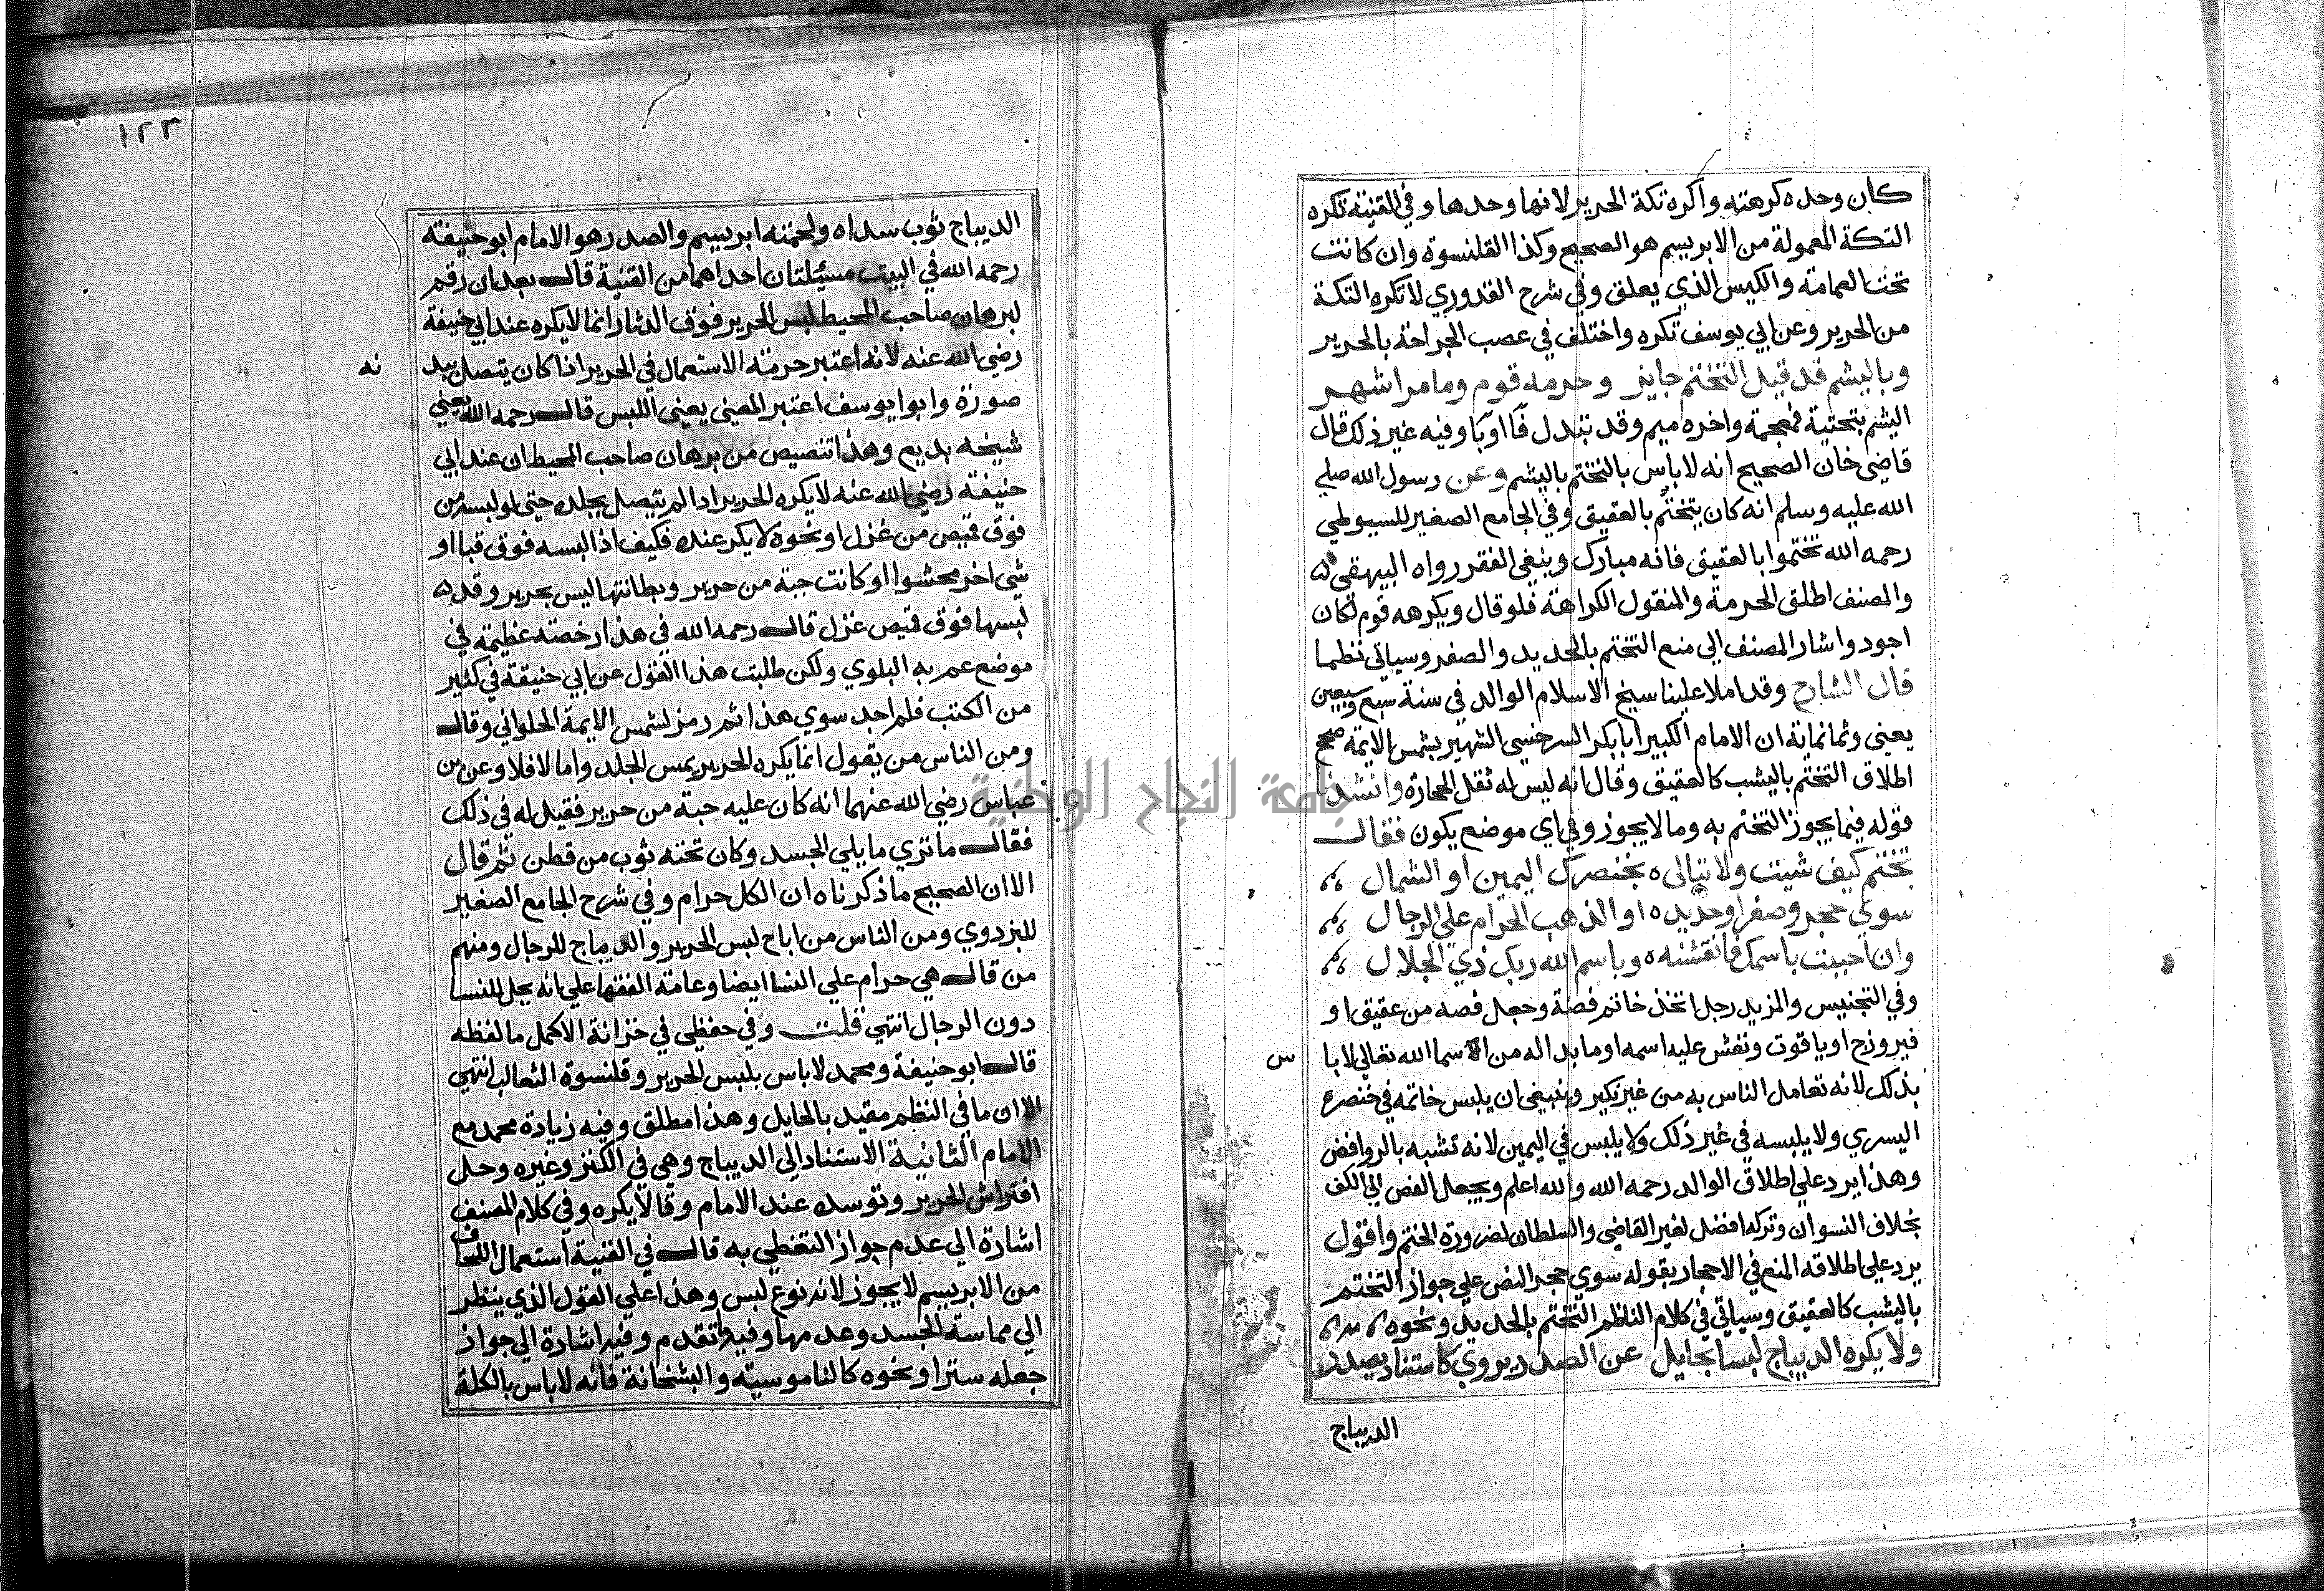 كان وحده كرهته واكره تكة الحرير لانها وحدها وفي القنية تكره
التكة المعمولة من الابريسم هو الصحيح وكذا القلنسوة وان كانت
تحت العمامة والكيس الذي يعلق وفي شرح القدوري لا تكره التكة
من الحرير وعن ابي يوسف تكره واختلف في عصب الجراحة بالحرير
وباليشم قد قيل التختم جايز وحرمه قوم وما مر اشهر
اليشم بتحتية فمعجمة واخره ميم وقد تبدل فا او با وفيه غير ذلك قال
قاضي خان الصحيح انه لا باس بالتختم باليشم وعن رسول الله صلي
الله عليه وسلم انه كان يتختم بالعقيق وفي الجامع الصغير للسيوطي
رحمه الله تختموا بالعقيق فانه مبارك وينفي الفقر رواه البيهقي
والمصنف اطلق الحرمة والمنقول الكراهة فلو قال ويكرهه قوم لكان
اجود واشار المصنف الي منع التختم بالحديد والصفر وسياتي نظما
قال الشارح وقد املا علينا سيخ الاسلام الوالد في سنة سبع وسبعين
يعني وثمانمائة ان الامام الكبير ابا بكر السرخسي الشهير بشمس الايمة صحح
اطلاق التختم باليشب كالعقيق وقال انه ليس له ثقل الحجارة وانشدنا
قوله فيما يجوز التختم به وما لا يجوز وفي اي موضع يكون فقال
تختم كيف شيت ولا تبالي ه بخنصرك اليمين او الشمال
سوي حجر وصفر او حديد ه او الذهب الحرام علي الرجال
وان احببت باسمك فانقشنه ه وباسم الله ربك ذي الجلال
وفي التجنيس والمزيد رجل اتخذ خاتم فضة وجعل فصه من عقيق او
فيروزج او ياقوت ونقش عليه اسمه او ما بدا له من الاسما الله تعالي لا با
س
بذلك لانه تعامل الناس به من غير نكير وينبغي ان يلبس خاتمه في خنصره
اليسري ولا يلبسه في غير ذلك ولا يلبس في اليمين لانه تشبه بالروافض
وهذا يرد علي اطلاق الوالد رحمه الله والله اعلم ويجعل الفص الي الكف
بخلاف النسوان وتركه افضل لغير القاضي والسلطان لضرورة الختم واقول
يرد علي اطلاقه المنع في الاحجار بقوله سوي حجر النص علي جواز التختم
باليشب كالعقيق وسياتي في كلام الناظم التختم بالحديد ونحوه
ولا يكره الديباج لبسا بحايل عن الصدر يروي كاستناد يصدر
الديباج
١٢٣
الديباج ثوب سداه ولحمته ابريسم والصدر هو الامام ابو حنيفة
رحمه الله في البيت مسيلتان احداهما من القنية قال بعد ان رقم
لبرهان صاحب المحيط لبس الحرير فوق الدثار انما لا يكره عند ابي حنيفة
رضي الله عنه لانه اعتبر حرمة الاستعمال في الحرير اذا كان يتصل ببد
نه
صورة وابوا يوسف اعتبر المعني يعني اللبس قال رحمه الله يعني
شيخه بديع وهذا تنصيص من برهان صاحب المحيط ان عند ابي
حنيفة رضي الله عنه لا يكره الحرير اذا لم يتصل بجلده حتي لو لبسه من
فوق قميص من غزل او نحوه لا يكره عنده فكيف اذا لبسه فوق قبا او
شي اخر محشوا او كانت جبة من حرير وبطانتها ليس بحرير وقد
لبسها فوق قميص غزل قال رحمه الله في هذا رخصة عظيمة في
موضع عم به البلوي ولكن طلبت هذا القول عن ابي حنيفة في كثير
من الكتب فلم اجد سوي هذا ثم رمز لشمس الايمة الحلواني وقال
ومن الناس من يقول انما يكره الحرير يمس الجلد واما لا فلا وعن بن
عباس رضي الله عنهما انه كان عليه جبة من حرير فقيل له في ذلك
فقال ما تري ما يلي الجسد وكان تحته ثوب من قطن ثم قال
الا ان الصحيح ما ذكرناه ان الكل حرام وفي شرح الجامع الصغير
للبزدوي ومن الناس من اباح لبس الحرير والديباج للرجال ومنهم
من قال هي حرام علي النسا ايضا وعامة الفقها علي انه يحل للنسا
دون الرجال انتهي قلت وفي حفظي في خزانة الاكمل ما لفظه
قال ابو حنيفة ومحمد لا باس بلبس الحرير وقلنسوة الثعالب انتهي
الا ان ما في النظم مقيد بالحايل وهذا مطلق وفيه زيادة محمد مع
الامام الثانية الاستناد الي الديباج وهي في الكنز وغيره وحل
افتراش الحرير وتوسده عند الامام وقالا يكره وفي كلام المصنف
اشارة الي عدم جواز التغطي به قال في القنية استعمال اللحاف
من الابريسم لا يجوز لانه نوع لبس وهذا علي القول الذي ينظر
الي مماسة الجسد وعدمها وفيه ما تقدم وفيه اشارة الي جواز
جعله سترا ونحوه كالناموسية والبشخانة فانه لا باس بالكلة
جامعة النجاح الوطنية